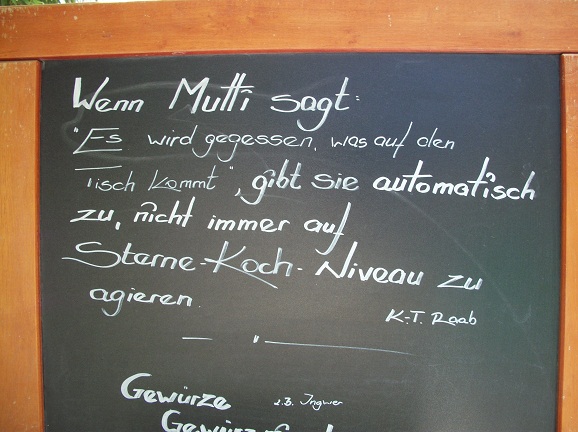 Wenn Mutti sagt:
"Es wird gegessen, was auf den
Tisch kommt", gibt sie automatisch
zu, nicht immer auf
Sterne-Koch-Niveau zu
agieren.
K.-T. Raab
Gewürze z.B. Ingwer